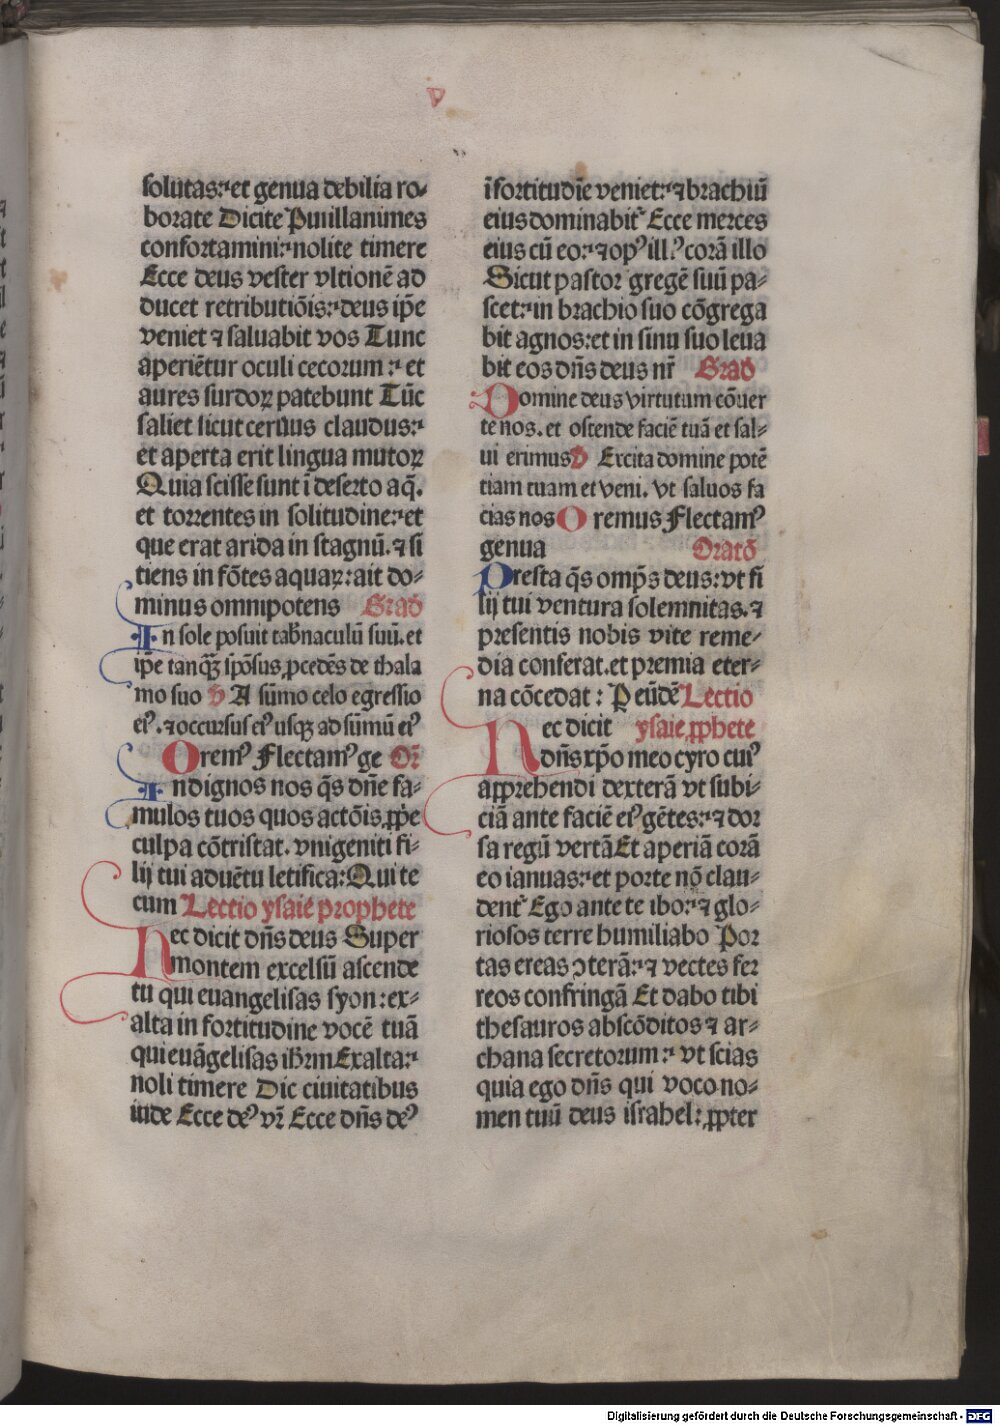 V
solutas: et genua debilia ro-
borate Dicite Pusillanimes
confortamini: nolite timere
Ecce deus vester vltionē ad
ducet retributiōis: deus ip̄e
veniet ⁊ saluabit vos Tunc
aperiētur oculi cecorum: et
aures surdoꝝ patebunt Tūc
saliet sicut ceruus claudus:
et aperta erit lingua mutoꝝ
Quia scisse sunt ī deserto aq̄.
et torrentes in solitudine: et
que erat arida in stagnū. ⁊ si
tiens in fōtes aquaꝝ: ait do-
minus omnipotens Grad
In sole posuit tab̄naculū suū. et
ip̄e tanqȝ̄ sp̄ōsus ꝓcedēs de thala
mo suo V A sūmo celo egressio
eiꝰ. ⁊ occursus eiꝰ usqȝ ad sūmū eiꝰ
Oremꝰ Flectamꝰ ge Or̄
Indignos nos q̄s dn̄e fa-
mulos tuos quos actōis ꝓp̄e
culpa cōtristat. vnigeniti fi-
lij tui aduētu letifica: Qui te
cum Lectio ysaie prophete
Hec dicit dn̄s deus Super
montem excelsū ascende
tu qui euangelisas syon: ex-
alta in fortitudine vocē tuā
qui euāgelisas ihr̄lm Exalta:
noli timere Dic ciuitatibus
iude Ecce deꝰ vr̄ Ecce dn̄s deꝰ
ī fortitudīe veniet: ⁊ brachiū
eius dominabit᷑ Ecce merces
eius cū eo: ⁊ opꝰ illꝰ corā illo
Sicut pastor gregē suū pa-
scet: in brachio suo cōgrega
bit agnos: et in sinu suo leua
bit eos dn̄s deus nr̄ Grad
Domine deus virtutum cōuer
te nos. et ostende faciē tuā et sal-
ui erimus V Excita domine potē
tiam tuam et veni. vt saluos fa
cias nos Oremus Flectamꝰ
genua Oratō
Presta q̄s omp̄s deus: vt fi
lij tui ventura solemnitas. ⁊
presentis nobis vite reme-
dia conferat. et premia eter-
na cōcedat: P eūdē Lectio
Hec dicit ysaie ꝓphete
dn̄s xp̄o meo cyro cuiꝰ
apprehendi dexterā vt subi-
ciā ante faciē eiꝰ gētes: ⁊ dor
sa regū vertā Et aperiā corā
eo ianuas: et porte nō clau-
dent᷑ Ego ante te ibo: ⁊ glo-
riosos terre humiliabo Por
tas ereas ↄterā: ⁊ vectes fer
reos confringā Et dabo tibi
thesauros abscōditos ⁊ ar-
chana secretorum: vt scias
quia ego dn̄s qui voco no-
men tuū deus israhel: ꝓpter
Digitalisierung gefördert durch die Deutsche Forschungsgemeinschaft - DFG